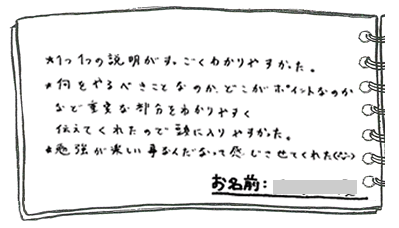 *1つ1つの説明がすっごくわかりやすかった。
*何をやるべきことなのか、どこがポイントなのか
などで重要な部分をわかりやすく
伝えてくれたので頭に入りやすかった。
*勉強が楽しい事なんだなって感じさせてくれた(^^)
お名前: